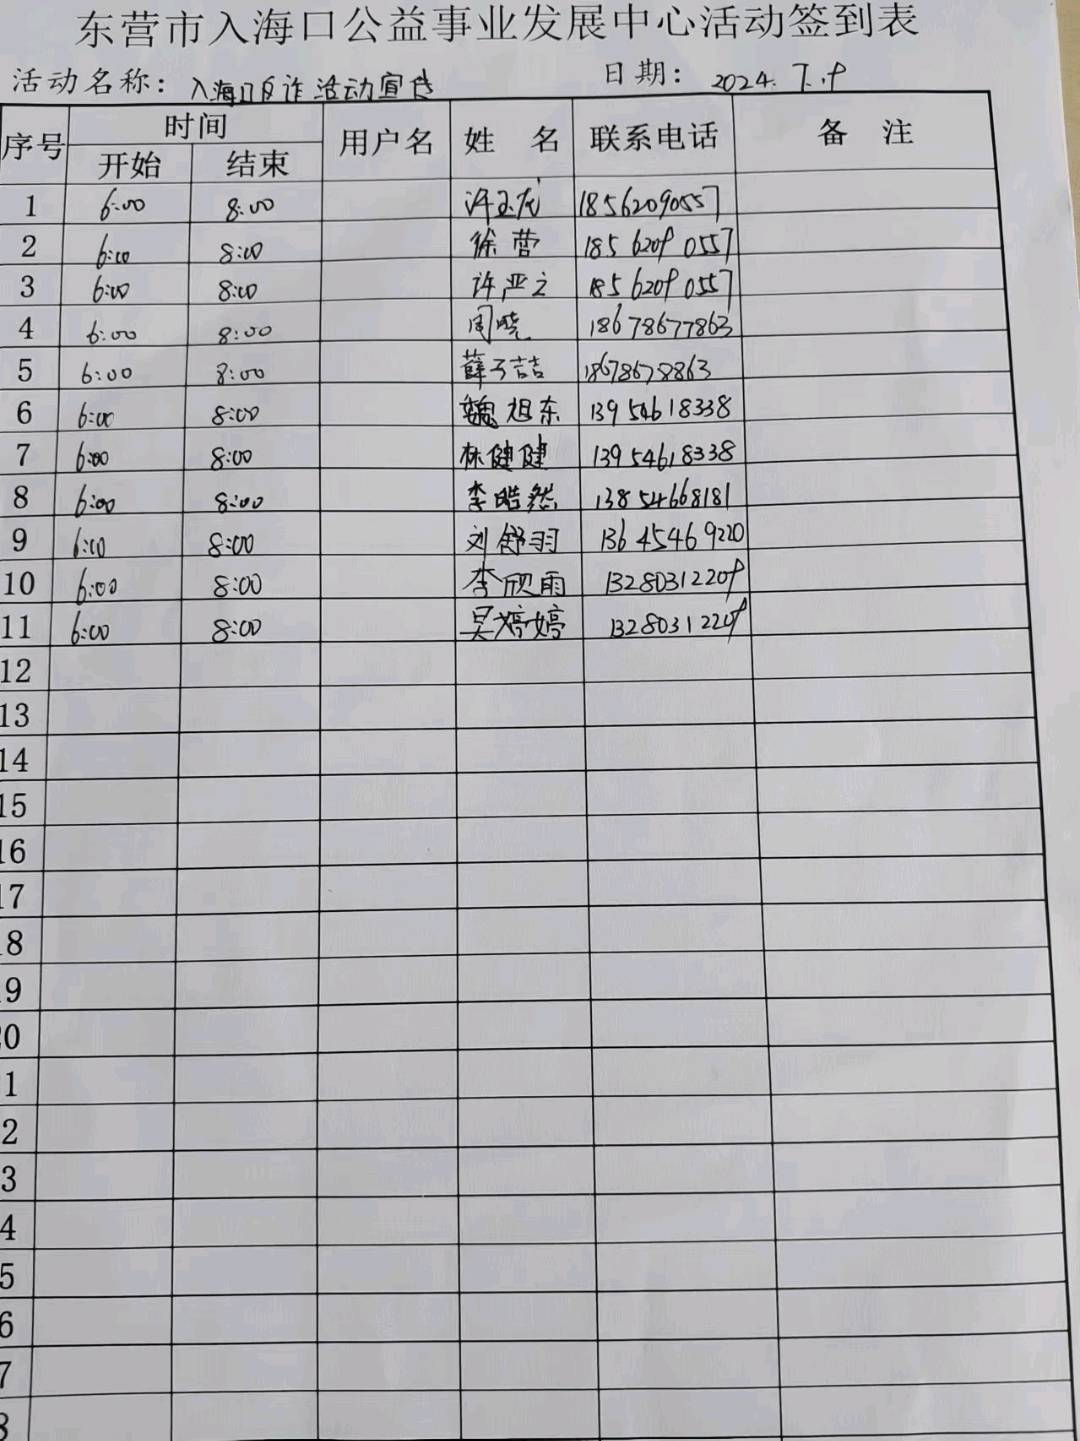 东营市入海口公益事业发展中心活动签到表
活动名称：入海口反诈活动宣传 日期：2024.7.9
序号 时间 用户名 姓 名 联系电话 备 注
开始 结束
1 6:00 8:00 许玉龙 18562090557
2 6:00 8:00 徐营 18562090557
3 6:00 8:00 许严之 18562090557
4 6:00 8:00 周晓 18678677863
5 6:00 8:00 薛子喆 18678678863
6 6:00 8:00 魏旭东 13954618338
7 6:00 8:00 林健健 13954618338
8 6:00 8:00 李皓然 13854668181
9 6:00 8:00 刘舒羽 13645469220
10 6:00 8:00 李欣雨 13280312209
11 6:00 8:00 吴婷婷 13280312209
12
13
14
15
16
17
18
19
20
1
2
3
4
5
6
7
8